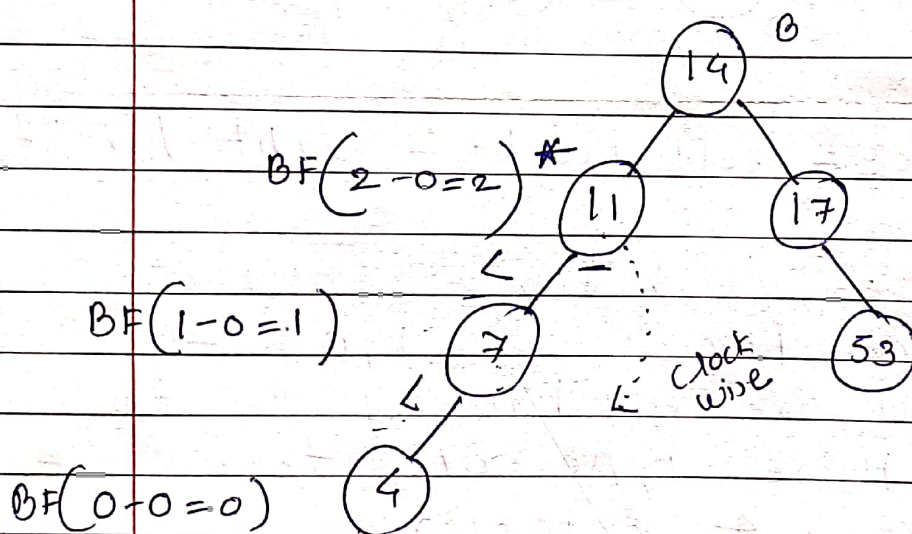 B
14
BF(2-0=2) *
11
17
L
BF(1-0=1)
7
53
Clock
wise
L
L
BF(0-0=0)
4